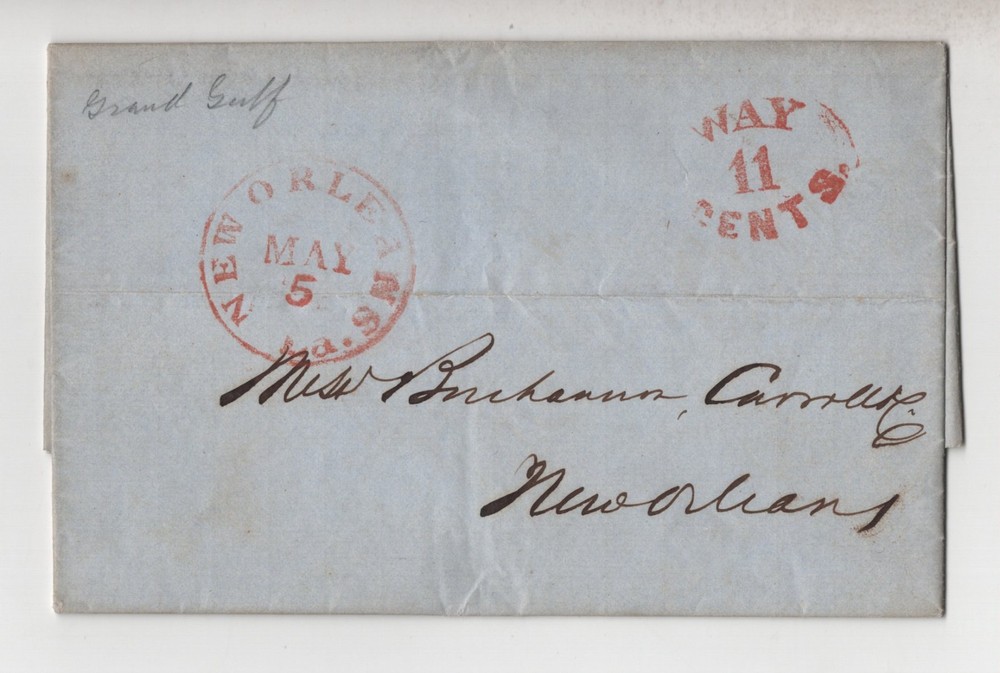 Grand Gulf
WAY
11
CENTS.
NEW ORLEANS
MAY
5
La.
Messrs Buchannon, Carroll & Co
New Orleans